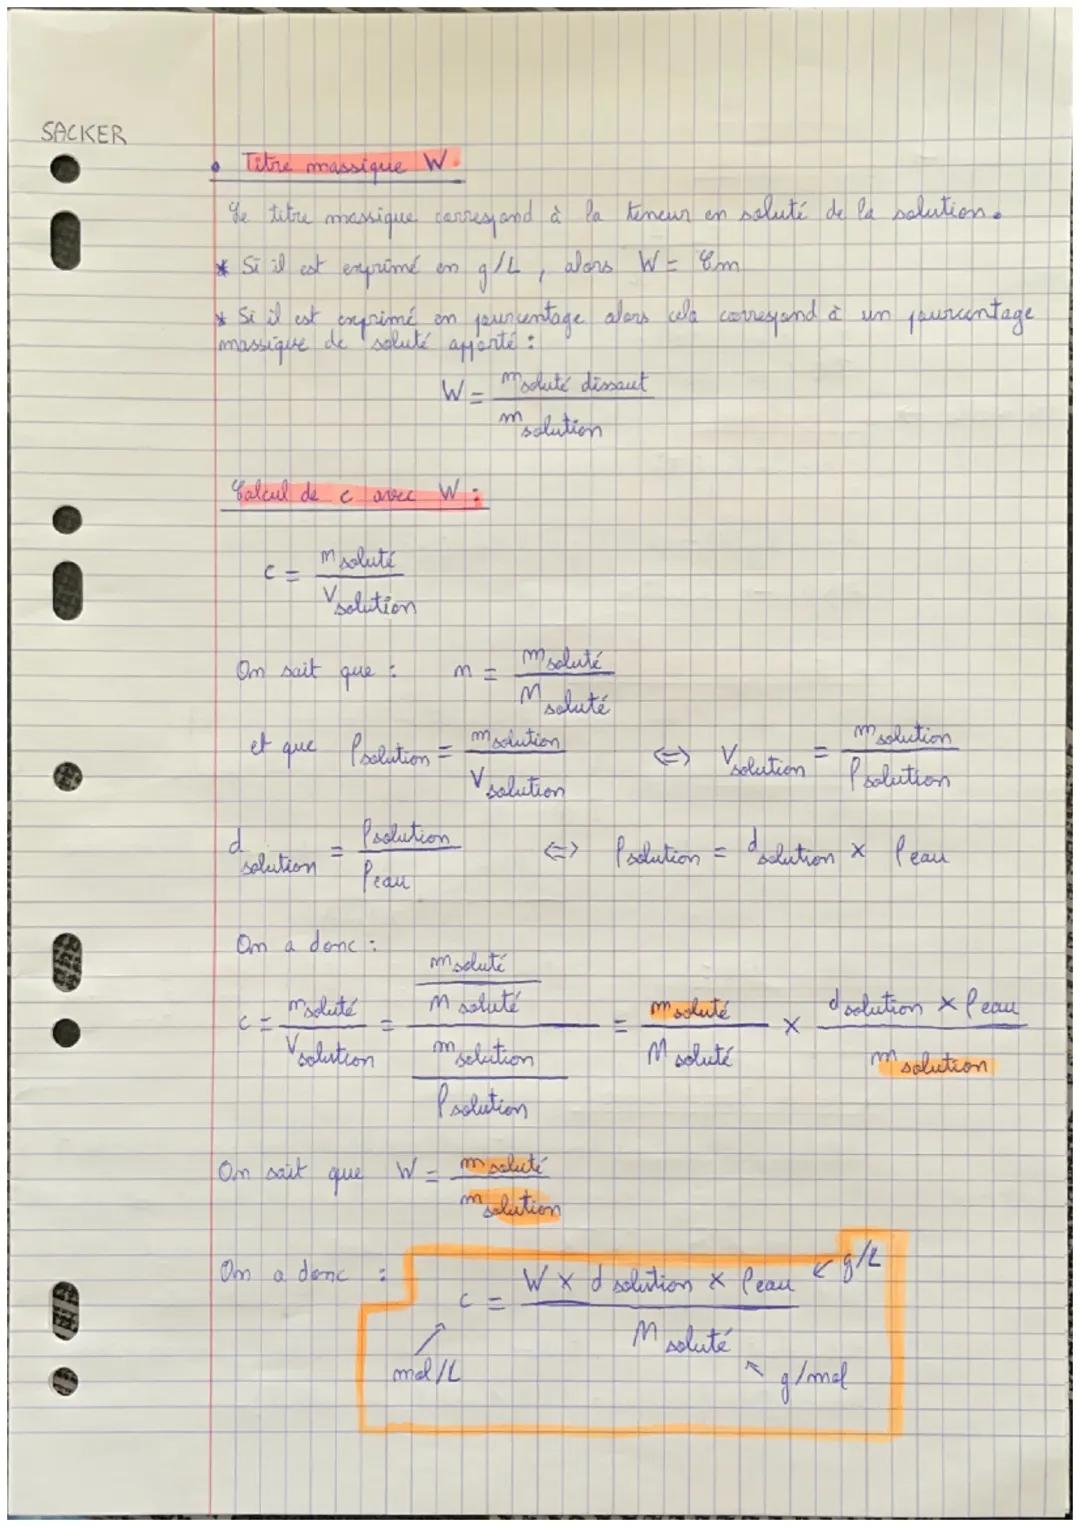 SACKER
• Titre massique W.
Le titre massique correspond à la teneur en soluté de la solution.
* Si il est exprimé en g/L, alors W = Cm
* Si il est exprimé en pourcentage alors cela correspond à un pourcentage
massique de soluté apporté :
W = m soluté dissout / m solution
Calcul de c avec W :
c = m soluté / V solution
On sait que : n = m soluté / M soluté
et que ρ solution = m solution / V solution ⇔ V solution = m solution / ρ solution
d solution = ρ solution / ρ eau ⇔ ρ solution = d solution × ρ eau
On a donc :
c = m soluté / V solution = (m soluté / M soluté) / (m solution / ρ solution) = m soluté / M soluté × d solution × ρ eau / m solution
On sait que W = m soluté / m solution
On a donc : c = W × d solution × ρ eau / M soluté
g/L
mol/L
g/mol